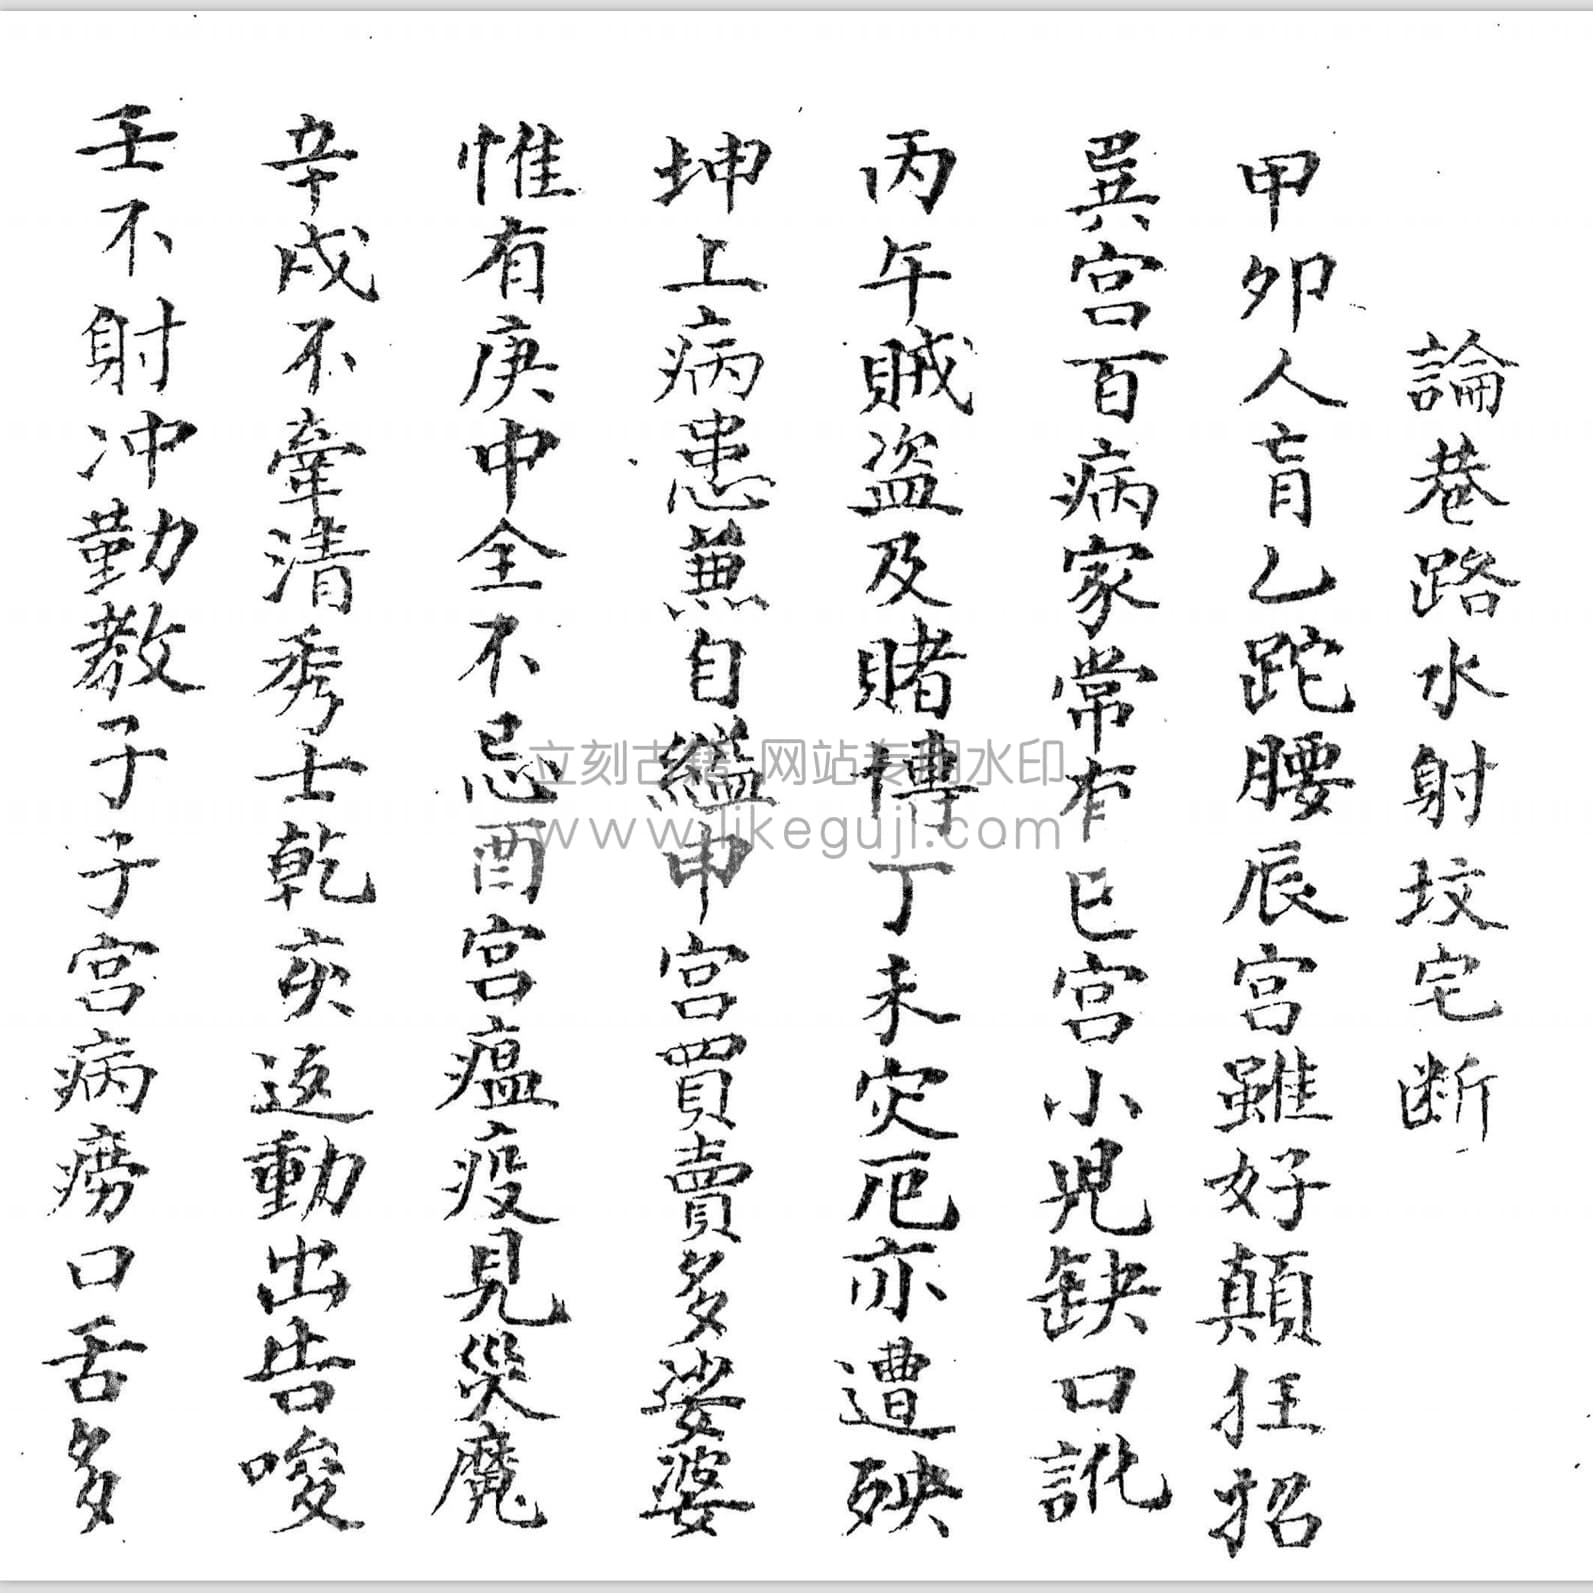 論巷路水射坟宅断
甲卯人肓乙跎腰辰宫雖好顛狂招
巽宫百病家常有巳宫小児缺口訛
丙午賊盗及賭愽丁未灾厄亦遭殃
坤上病患兼自縊申宫買賣多娑婆
惟有庚申全不忌酉宫瘟疫見災魔
辛戌不牽清秀士乾亥逆動出告唆
壬不射冲勤教子子宫病痨口舌多
立刻古籍 网站专用水印
www.likeguji.com